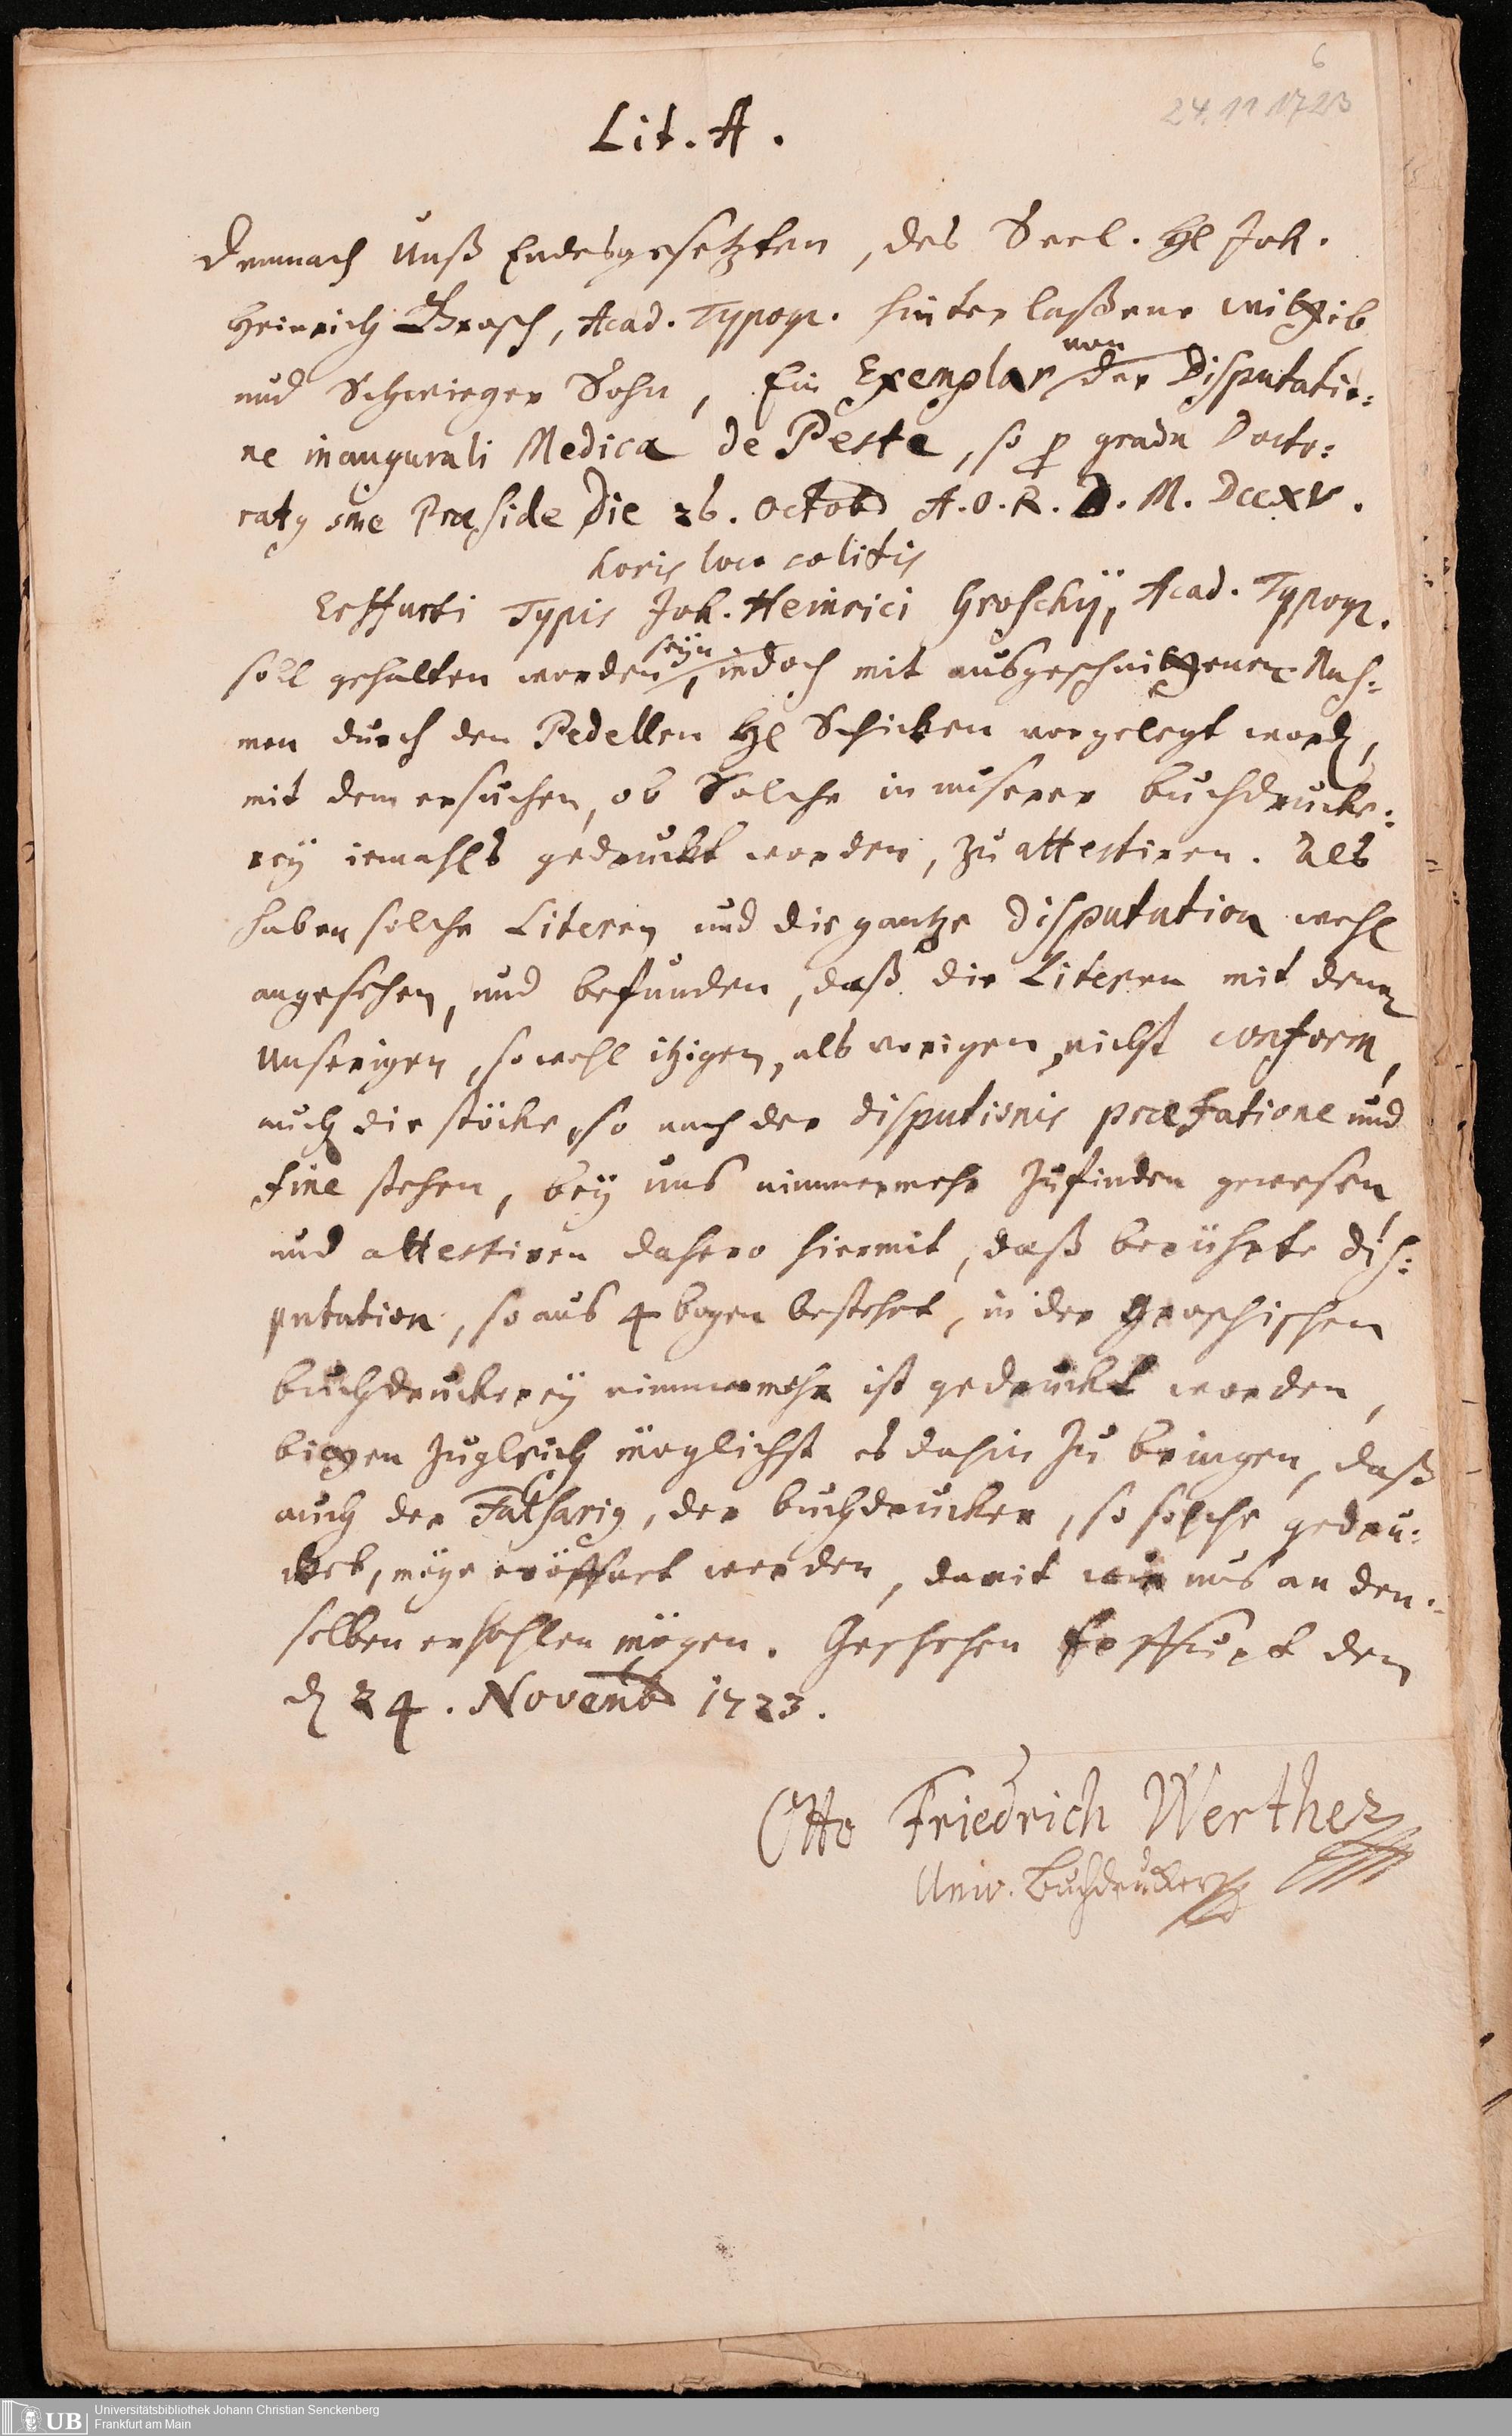 6
24.11 1723
Lit. A.
Demnach unß Endesgesetzten, des Seel. H. Joh.
Heinrich Grosch, Acad. Typogr. hinterlaßene wittib
und Schwieger Sohn, Ein Exemplar von der Disputatio:
ne inaugurali Medica de Peste, so p gradu Docto:
raty sine Præside Die 26. Octobr A. O. R. D. M. DccXV.
horis loco colitis
Erffurti Typis Joh. Heinrici Groschij, Acad. Typogr.
soll gehalten worden seyn, iedoch mit ausgeschnittenen Nah:
men durch den Pedellen H. Schicken vorgelegt word,
mit dem ersuchen, ob Solche in unserer buchdrucke:
rey iemahls gedruckt worden, zu attestiren. Als
haben solche Literen und die gantze Disputation wohl
angesehen, und befunden, daß die Literen mit denen
unserigen, sowohl itzigen, als vorigen nicht conform,
auch die stöcke, so nach der disputionis præfatione und
fine stehen, bey uns nimmermehr zufinden gewesen,
und attestiren dahero hiermit, daß berührte dis:
putation, so aus 4 bogen bestehet, in der Groschischen
buchdruckerey nimmermehr ist gedruckt worden,
bitten zugleich möglichst es dahin zu bringen, daß
auch der Falsarig, der buchdrucker, so solche gedru:
cket, möge eröffnet werden, damit wir uns an den:
selben erhohlen mögen. Geschehen Erffurt den
d 24. Novemb 1723.
Otto Friedrich Werther
Univ. Buchdrucker
UB Universitätsbibliothek Johann Christian Senckenberg
Frankfurt am Main